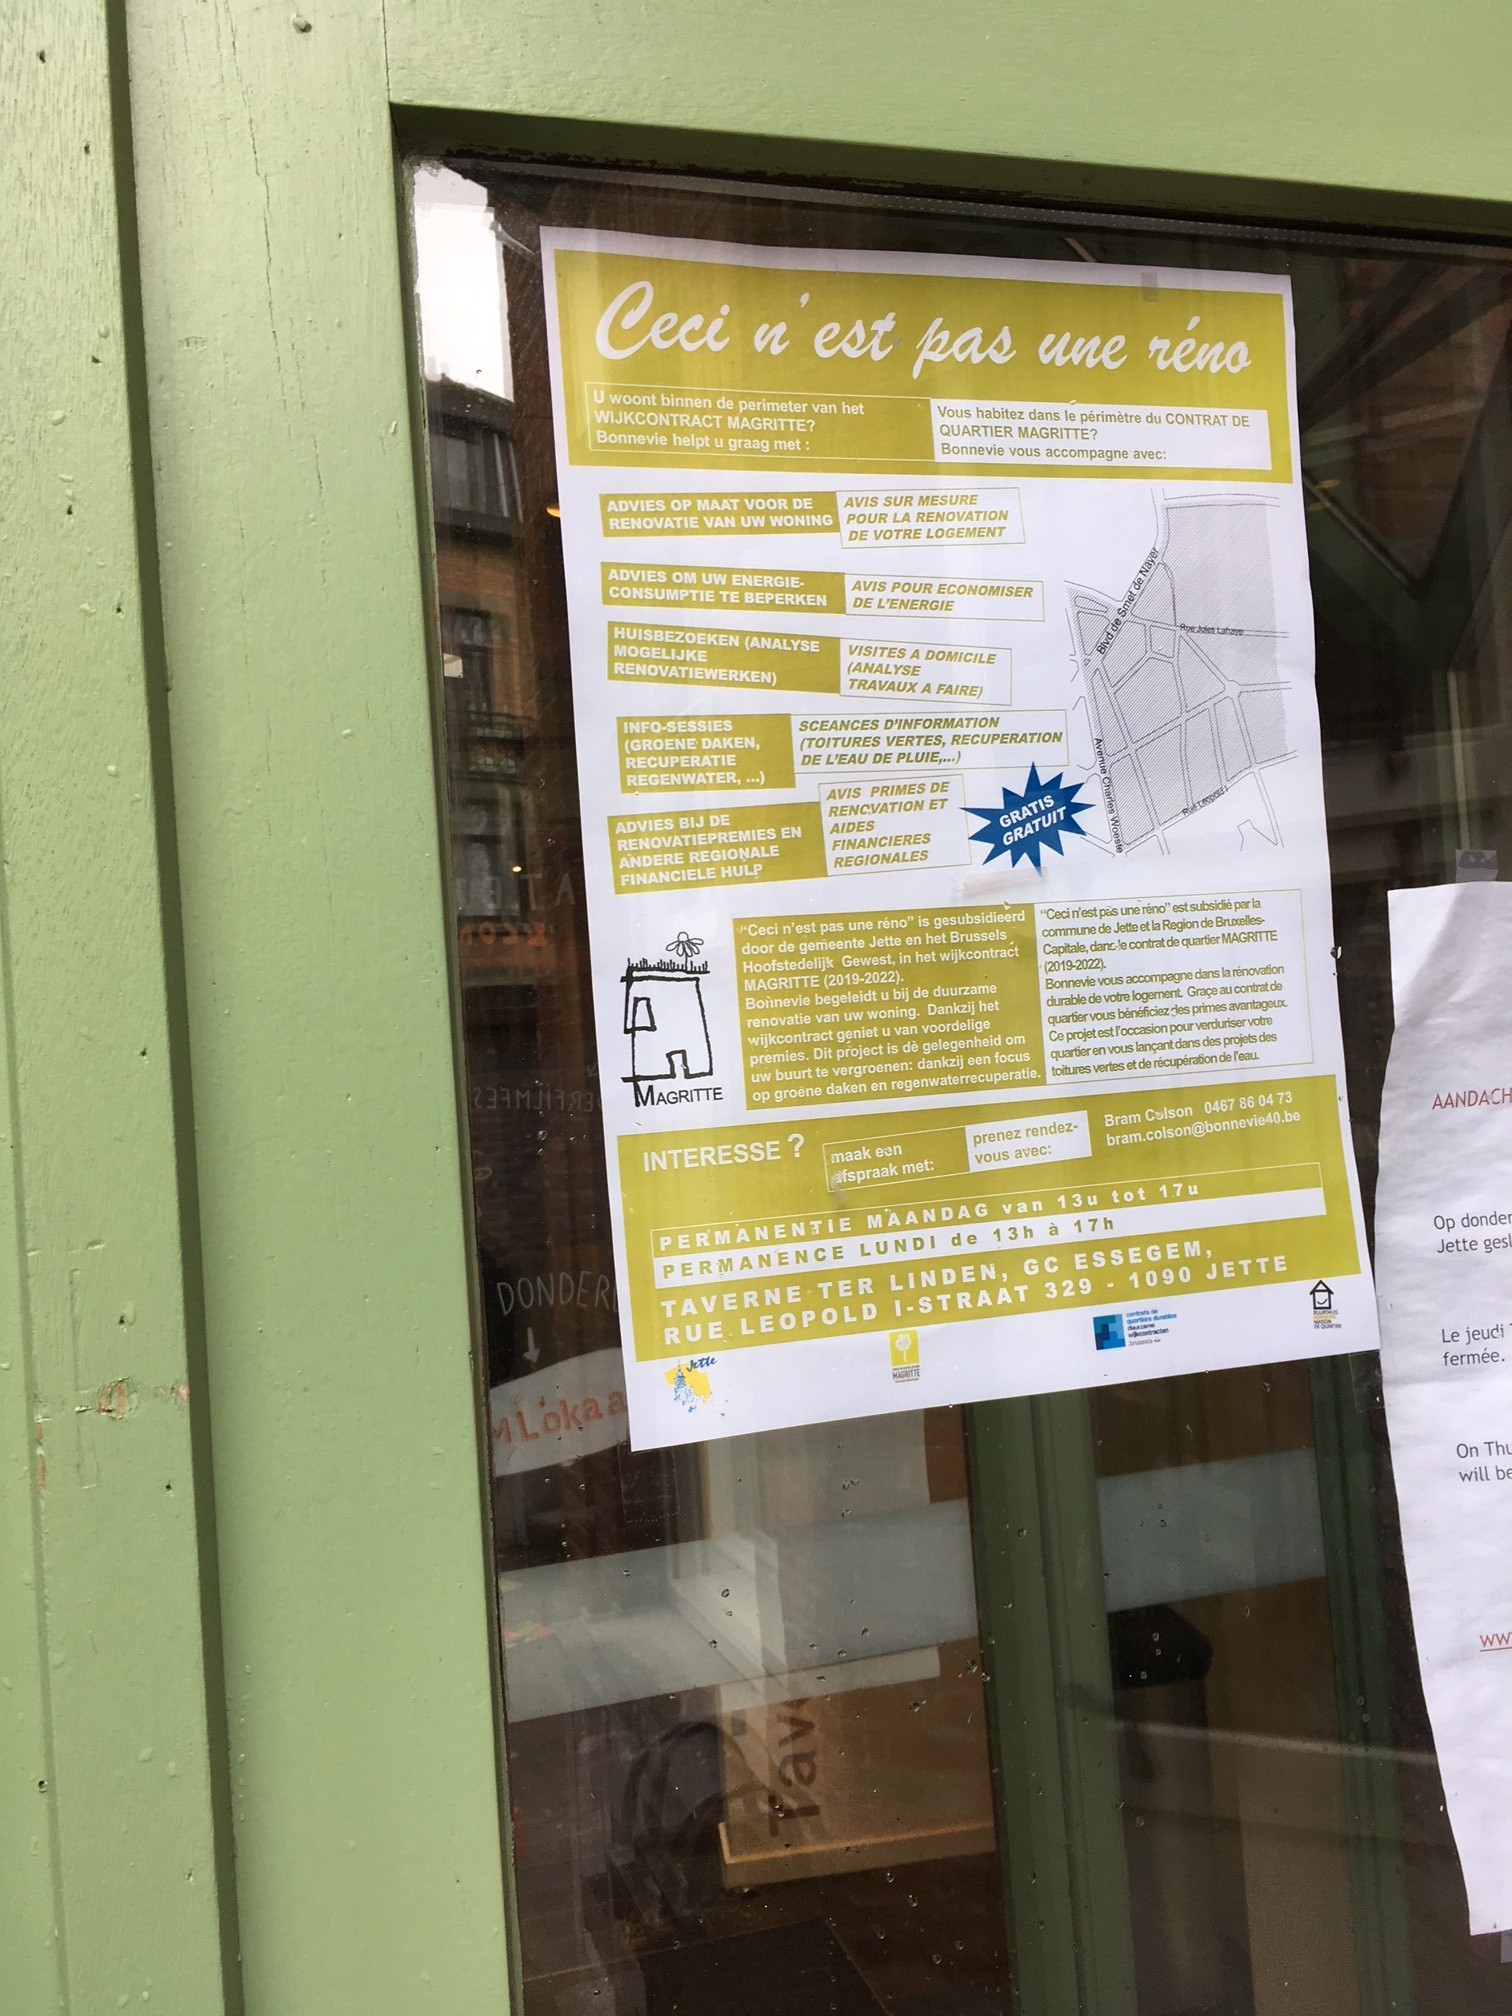 Ceci n'est pas une réno
U woont binnen de perimeter van het
WIJKCONTRACT MAGRITTE?
Bonnevie helpt u graag met :
Vous habitez dans le périmètre du CONTRAT DE
QUARTIER MAGRITTE?
Bonnevie vous accompagne avec:
ADVIES OP MAAT VOOR DE
RENOVATIE VAN UW WONING
AVIS SUR MESURE
POUR LA RENOVATION
DE VOTRE LOGEMENT
ADVIES OM UW ENERGIE-
CONSUMPTIE TE BEPERKEN
AVIS POUR ECONOMISER
DE L'ENERGIE
HUISBEZOEKEN (ANALYSE
MOGELIJKE
RENOVATIEWERKEN)
VISITES A DOMICILE
(ANALYSE
TRAVAUX A FAIRE)
INFO-SESSIES
(GROENE DAKEN,
RECUPERATIE
REGENWATER, ...)
SCEANCES D'INFORMATION
(TOITURES VERTES, RECUPERATION
DE L'EAU DE PLUIE,...)
ADVIES BIJ DE
RENOVATIEPREMIES EN
ANDERE REGIONALE
FINANCIELE HULP
AVIS PRIMES DE
RENOVATION ET
AIDES
FINANCIERES
REGIONALES
GRATIS
GRATUIT
Blvd de Smet de Nayer
Rue Jules Lahaye
Avenue Charles Woeste
Rue Leopold I
MAGRITTE
"Ceci n'est pas une réno" is gesubsidieerd
door de gemeente Jette en het Brussels
Hoofstedelijk Gewest, in het wijkcontract
MAGRITTE (2019-2022).
Bonnevie begeleidt u bij de duurzame
renovatie van uw woning. Dankzij het
wijkcontract geniet u van voordelige
premies. Dit project is dè gelegenheid om
uw buurt te vergroenen: dankzij een focus
op groene daken en regenwaterrecuperatie.
"Ceci n'est pas une réno" est subsidié par la
commune de Jette et la Region de Bruxelles-
Capitale, dans le contrat de quartier MAGRITTE
(2019-2022).
Bonnevie vous accompagne dans la rénovation
durable de votre logement. Graçe au contrat de
quartier vous bénéficiez des primes avantageux.
Ce projet est l'occasion pour verduriser votre
quartier en vous lançant dans des projets des
toitures vertes et de récupération de l'eau.
INTERESSE ?
maak een
afspraak met:
prenez rendez-
vous avec:
Bram Colson 0467 86 04 73
bram.colson@bonnevie40.be
PERMANENTIE MAANDAG van 13u tot 17u
PERMANENCE LUNDI de 13h à 17h
TAVERNE TER LINDEN, GC ESSEGEM,
RUE LEOPOLD I-STRAAT 329 - 1090 JETTE
Jette
MAGRITTE
contrats de
quartiers durables
duurzame
wijkcontracten
BUURTHUIS
BONNEVIE
MAISON
DE QUARTIER
AANDACH
Op donder
Jette gesl
Le jeudi
fermée.
On Thu
will be
www
DONDER
Lokaa
Tave